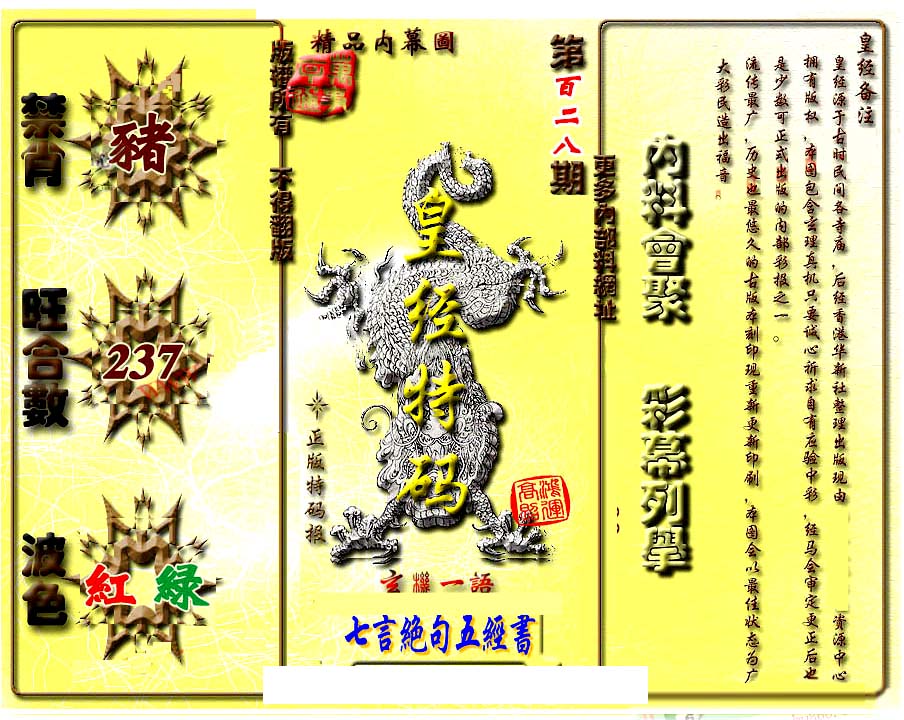 精品內幕圖
版權所有 不得翻版
第百二八期
更多內部料網址
禁肖
豬
旺合數
237
波色
紅 綠
皇经特码
正版特码报
鴻運
高照
玄機一語
七言絕句五經書
內料會聚 彩幕列學
皇经备注
皇经源于古时民间各寺庙,后经香港华新社整理出版现由 资源中心
拥有版权,本图包含玄理真机只要诚心祈求自有应验中彩,经马会审定更正后也
是少数可正式出版的内部彩报之一。
流传最广,历史也最悠久的古版本刻印现重新更新印刷,本图会以最佳状态为广
大彩民造出福音